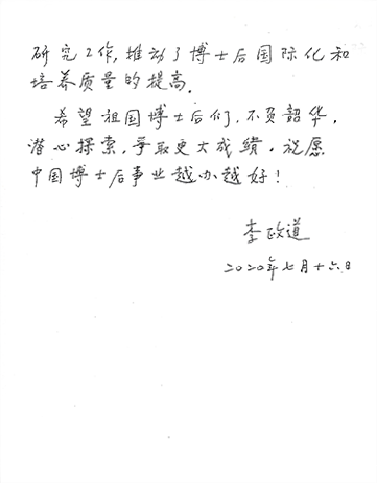 研究工作,推动了博士后国际化和
培养质量的提高.
希望祖国博士后们,不负韶华,
潜心探索,争取更大成绩。祝愿
中国博士后事业越办越好!
李政道
2020年七月十六日